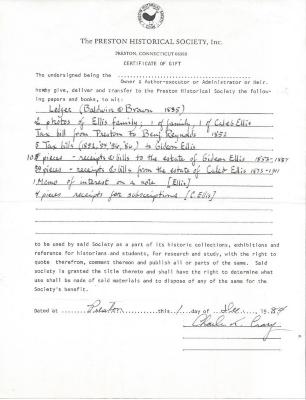 The PRESTON HISTORICAL SOCIETY, Inc.
PRESTON, CONNECTICUT 06360
CERTIFICATE OF GIFT
The undersigned being the
Owner & Author-executor or Administrator or Heir.
hereby give, deliver and transfer to the Preston Historical Society the follow-
ing papers and books, to wit:
Ledger (Baldwin & Brown 1835)
2 photos of Ellis family; 1 of family; 1 of Caleb Ellis
Tax bill from Preston to Benj Reynolds 1852
5 Tax bills to Gideon Ellis
pieces - receipts & bills to the estate of Gideon Ellis 1853-1887
pieces - receipts & bills from the estate of Caleb Ellis 1873-1911
1 Memo of interest on a note [Ellis]
4 pieces receipts for subscriptions [C. Ellis]
to be used by said Society as a part of its historic collections, exhibitions and
reference for historians and students, for research and study, with the right to
quote therefrom, comment thereon and publish all or parts of the same. Said
society is granted the title thereto and shall have the right to determine what
use shall be made of said materials and to dispose of any of the same for the
Society's benefit.
Dated at Preston this 1 day of Dec 1984
Charles L.